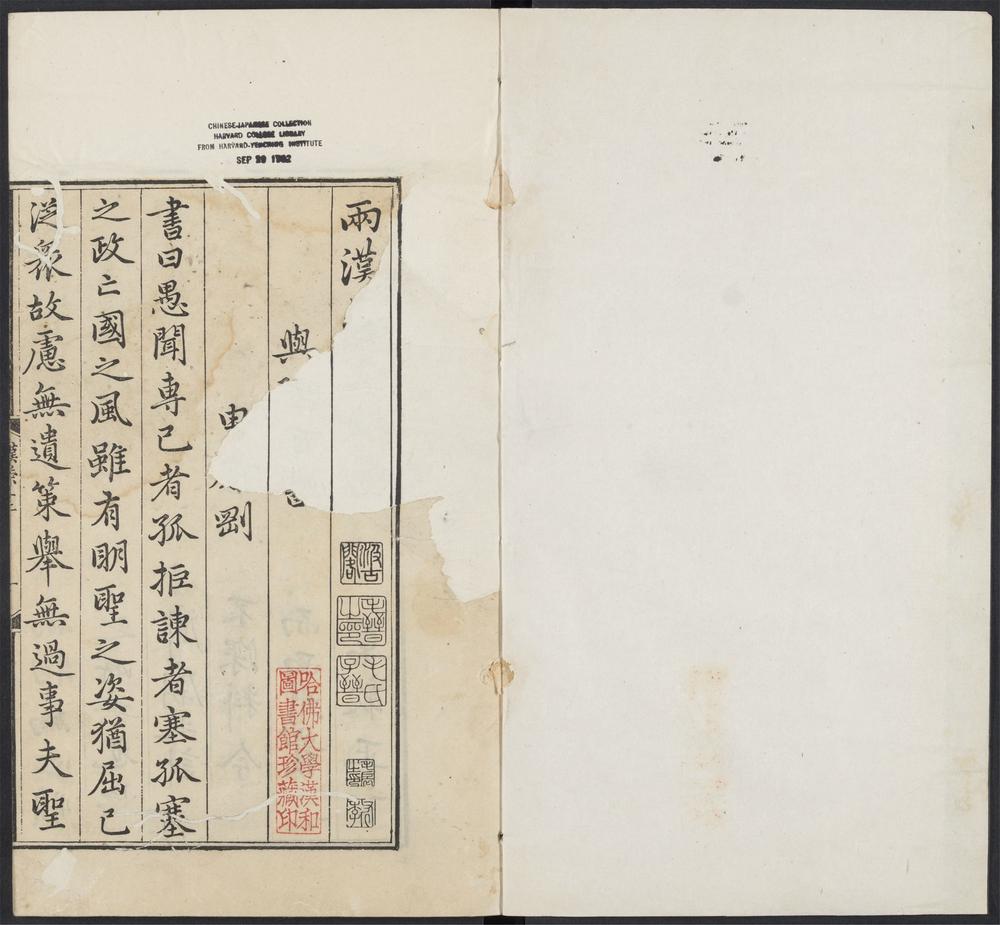 CHINESE-JAPANESE COLLECTION
HARVARD COLLEGE LIBRARY
FROM HARVARD-YENCHING INSTITUTE
SEP 29 1932
兩漢
與
申
剛
書曰愚聞專己者孤拒諫者塞孤塞
之政亡國之風雖有明聖之姿猶屈己
從衆故慮無遺策舉無過事夫聖
汲古閣
毛氏子晉
哈佛大學漢和圖書館珍藏印